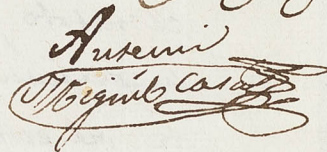 Ante mi
Miguel Casas